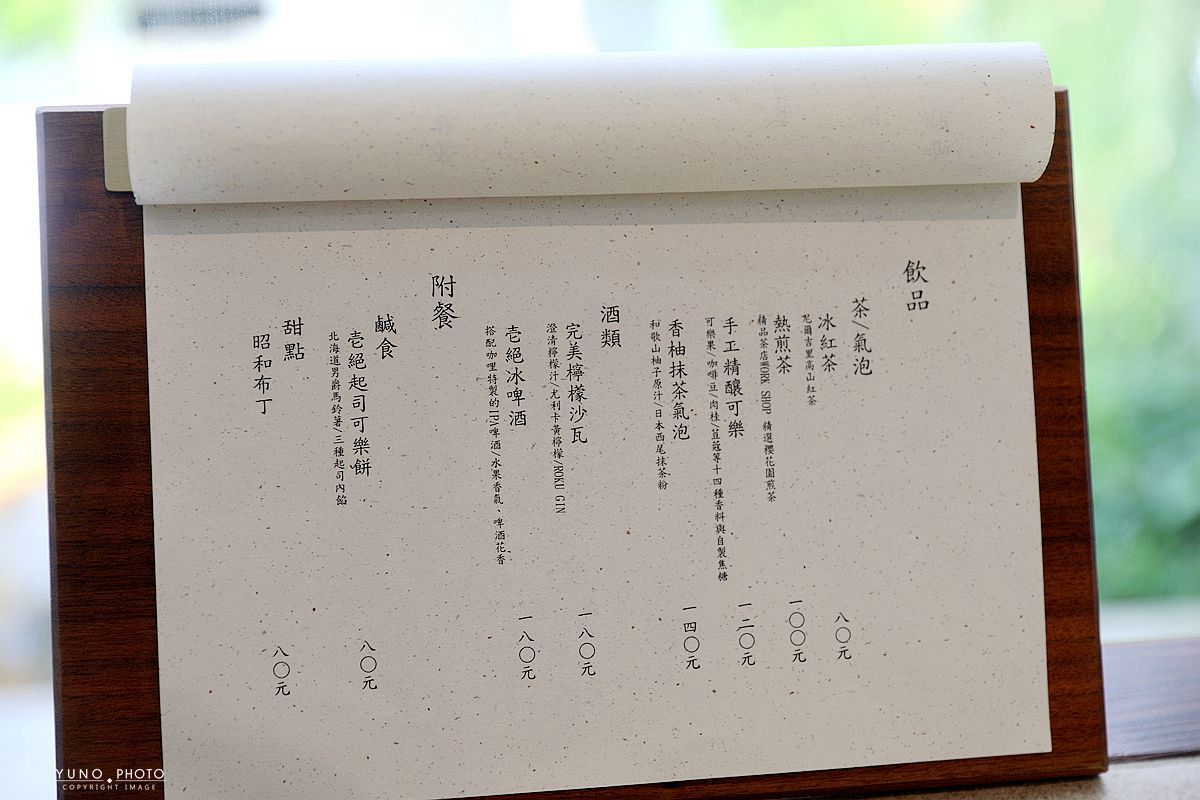 飲品
茶/氣泡
冰紅茶
八〇元
尼爾吉里高山紅茶
熱煎茶
一〇〇元
精品茶店WORK SHOP 精選櫻花園煎茶
手工精釀可樂
一二〇元
可樂果/咖啡豆/肉桂/荳蔻等十四種香料與自製焦糖
香柚抹茶氣泡
一四〇元
和歌山柚子原汁/日本西尾抹茶粉
酒類
完美檸檬沙瓦
一八〇元
澄清檸檬汁/尤利卡黃檸檬/ROKU GIN
壱絕冰啤酒
一八〇元
搭配咖哩特製的IPA啤酒/水果香氣、啤酒花香
附餐
鹹食
壱絕起司可樂餅
八〇元
北海道男爵馬鈴薯/三種起司內餡
甜點
昭和布丁
八〇元
YUNO PHOTO
COPYRIGHT IMAGE